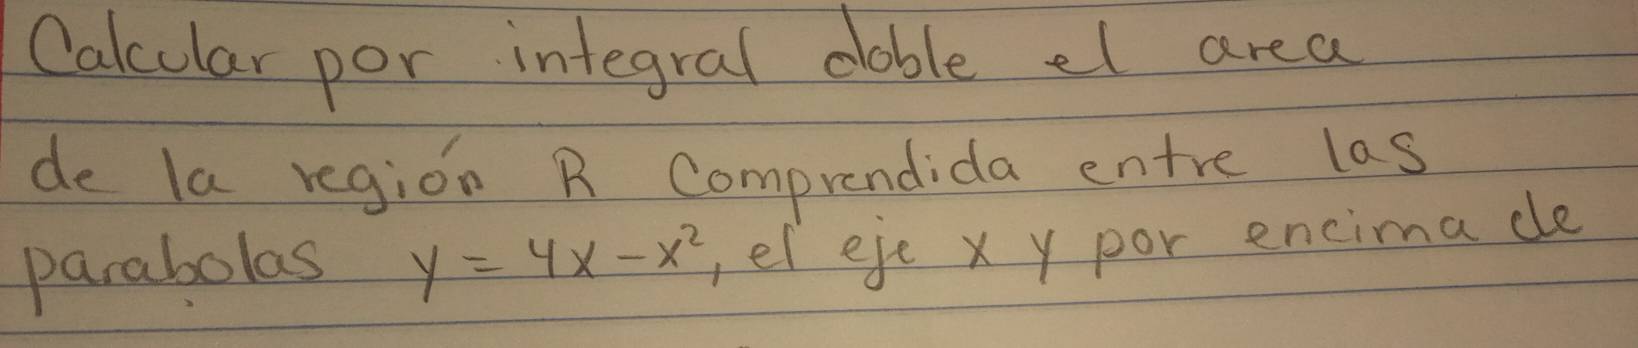 Calcular por integral doble el area
de la región R Comprendida entre las
parabolas y = 4x - x², el eje x y por encima de